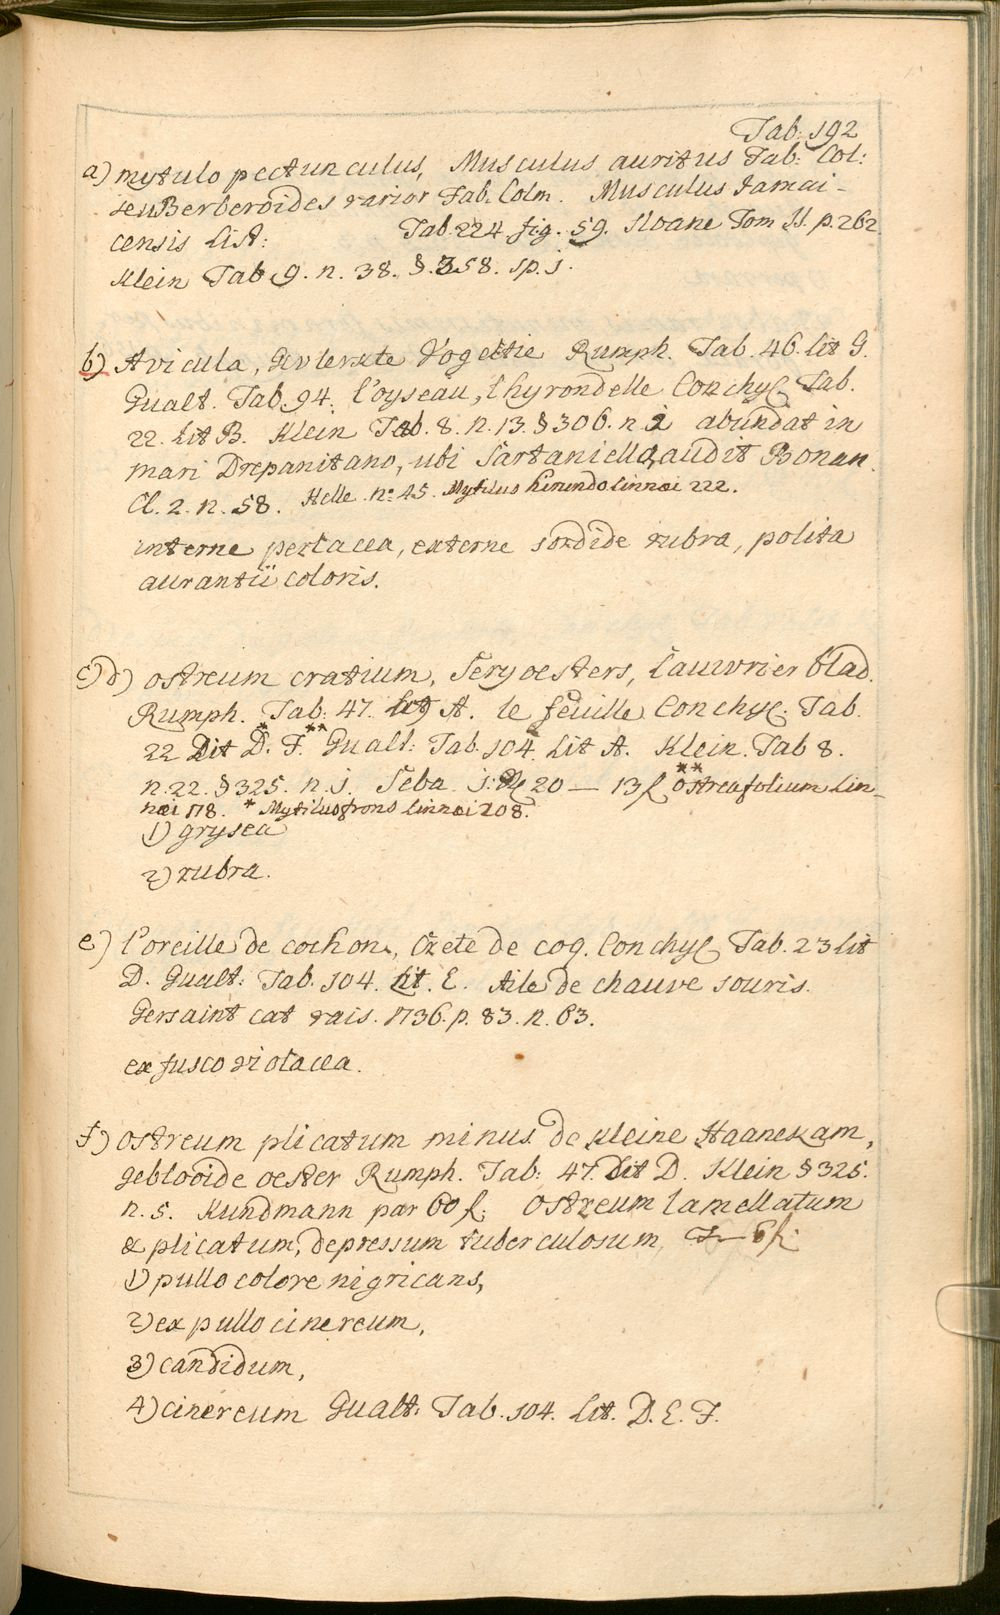 Tab: 192
a) mytulo pectunculus, Musculus auritus Fab: Col:
seu Berberoides rarior Fab. Colm. Musculus Jamai-
censis List: Tab. 224 fig. 59. Sloane Tom II. p. 262
Klein Tab 9. n. 38. §. 358. sp. j.
b) Avicula, Rumph. Tab. 46. lit G.
Gualt. Tab. 94. l'oyseau, l'hyrondelle Conchyl Tab.
22. Lit B. Klein Tab. 8. n. 13. § 306. n 2 abundat in
mari Drepanitano, ubi Sartaniella, audit Bonan.
Cl. 2. n. 58. Helle n: 45. Mytilus hirundo linnæi 222.
interne perlacea, externe sordide rubra, polita
aurantii coloris.
c) d) ostreum cratium, Seryoesters, Lauwrier blad.
Rumph. Tab. 47. A. le feuille Conchyl. Tab.
22 Lit D. * F. ** Gualt: Tab. 104. Lit A. Klein. Tab 8.
n. 22. § 325. n. j. Seba 20 — 13 f ** ostrea folium Lin-
næi 178. * Mytilus frons linnæi 208.
1) grysea
2) rubra.
e) l'oreille de cochon, Crete de coq. Conchyl Tab. 23 lit
D. Gualt: Tab. 104. Lit. E. Aile de chauve souris.
Gersaint cat rais. 1736. p. 83. n. 63.
ex fusco violacea.
f) ostreum plicatum minus de kleine Haanekam,
geblooide oester Rumph. Tab: 47. Lit D. Klein § 325.
n. 5. Kundmann par 60 f. Ostreum lamellatum
& plicatum, depressum tuberculosum, 6 f:
1) pullo colore nigricans,
2) ex pullo cinereum,
3) candidum,
4) cinereum Gualt: Tab. 104. Lit. D. E. F.